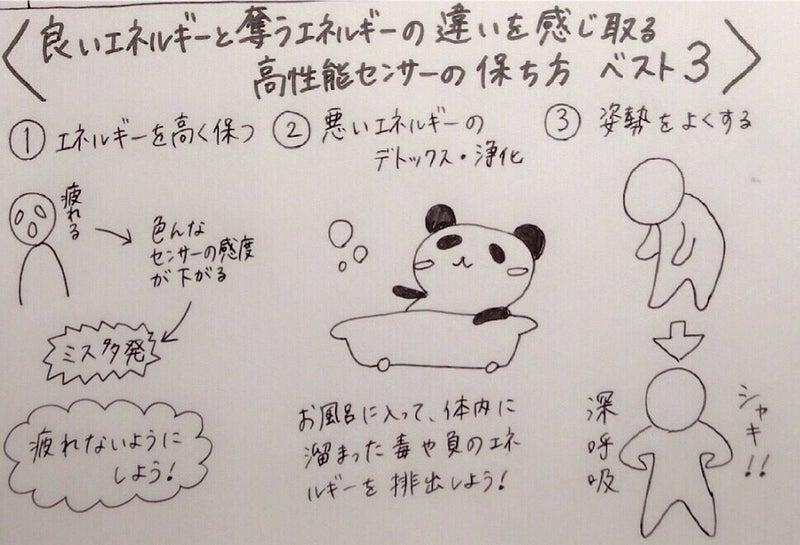 〈良いエネルギーと奪うエネルギーの違いを感じ取る
高性能センサーの保ち方 ベスト3〉
① エネルギーを高く保つ
疲れる
色んな
センサーの感度
が下がる
ミス多発
疲れないように
しよう!
② 悪いエネルギーの
デトックス・浄化
お風呂に入って、体内に
溜まった毒や負のエネ
ルギーを排出しよう!
③ 姿勢をよくする
深呼吸
シャキ!!